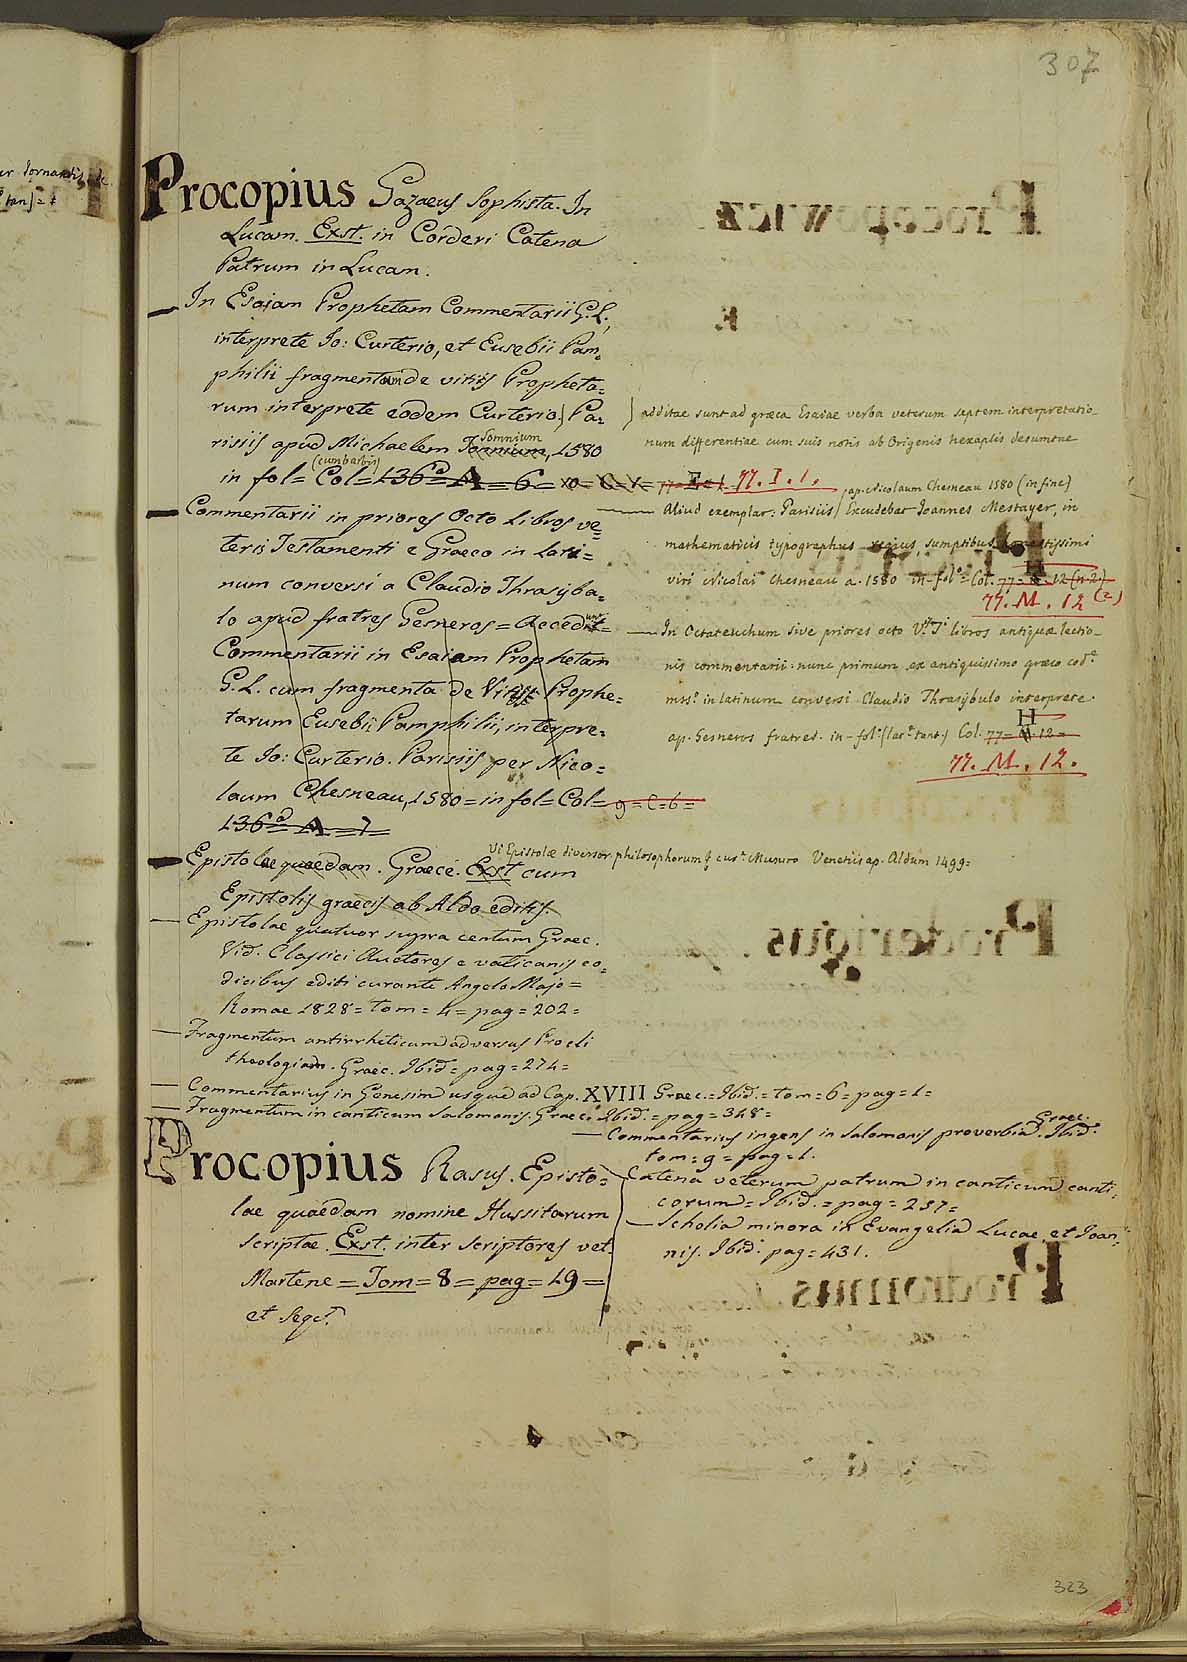 307
Procopius Gazaeus Sophista. In
Lucam. Exst. in Corderi Catena
Patrum in Lucam.
— In Esaiam Prophetam Commentarii G.L.,
interprete Io: Curterio, et Eusebii Pam=
philii fragmenta de vitis Propheta=
rum interprete eodem Curterio.) Pa=
risiis apud Michaelem Somnium, 1580
in fol= (cum barbis) Col= 136.a A = 6 = 77. I. 1.
— Commentarii in priores Octo Libros ve=
teris Testamenti e Graeco in Lati=
num conversi a Claudio Thrasyba=
lo apud fratres Gesneros = Accedunt=
Commentarii in Esaiam Prophetam
G. L. cum fragmenta de Vitis Prophe=
tarum Eusebii Pamphilii, interpre=
te Io: Curterio. Parisiis per Nico=
laum Chesneau, 1580 = in fol= Col= 9 = C = 6 =
136.a A = 7 =
— Epistolae quaedam. Graecè. Exst cum
Epistolis graecis ab Aldo editis.
Vi Epistolæ diversor. philosophorum Musuro Venetiis ap. Aldum 1499=
— Epistolae quatuor supra centum Graec.
Vid. Classici Auctores e vaticanis co=
dicibus editi curante Angelo Majo =
Romae 1828 = tom = 4 = pag = 202 =
— Fragmentum antirrheticum adversus Procli
theologiam. Graec. Ibid = pag = 274 =
— Commentarius in Genesim usque ad Cap. XVIII Graec. = Ibid. = tom = 6 = pag = 1 =
— Fragmentum in canticum Salomonis. Graec. Ibid. = pag = 348 =
Procopius Rasus. Episto=
lae quaedam nomine Hussitarum
scriptae. Exst. inter scriptores vet.
Martene = Tom = 8 = pag = 19 =
et seqq.
) additae sunt ad græca Esaiae verba veterum septem interpretatio_
num differentiae cum suis notis ab Origenis hexaplis desumtae
— Aliud exemplar: Parisiis ap. Nicolaum Chesneau 1580 (in fine) Excudebat Joannes Mestayer, in
mathematicis typographus regius, sumptibus honestissimi
viri Nicolai Chesneau a. 1580 in-fol.o = Col. 77 = H 12 (n 2)
77. M. 12 (2)
— In Octateuchum sive priores octo V. T. libros antiquæ lectio_
nis commentarii nunc primum ex antiquissimo græco cod.e
mss.o in latinum conversi Claudio Thrasybulo interprete.
ap. Gesneros fratres. in-fol. (lat.e tant.) Col. 77 = H 12 =
77. M. 12.
— Commentarius ingens in Salomonis proverbia. Graec. Ibid.
tom = 9 = pag = 1.
Catena veterum patrum in canticum canti=
corum = Ibid. = pag = 257 =
— Scholia minora in Evangelia Lucae, et Ioan=
nis. Ibid. pag = 431.
323